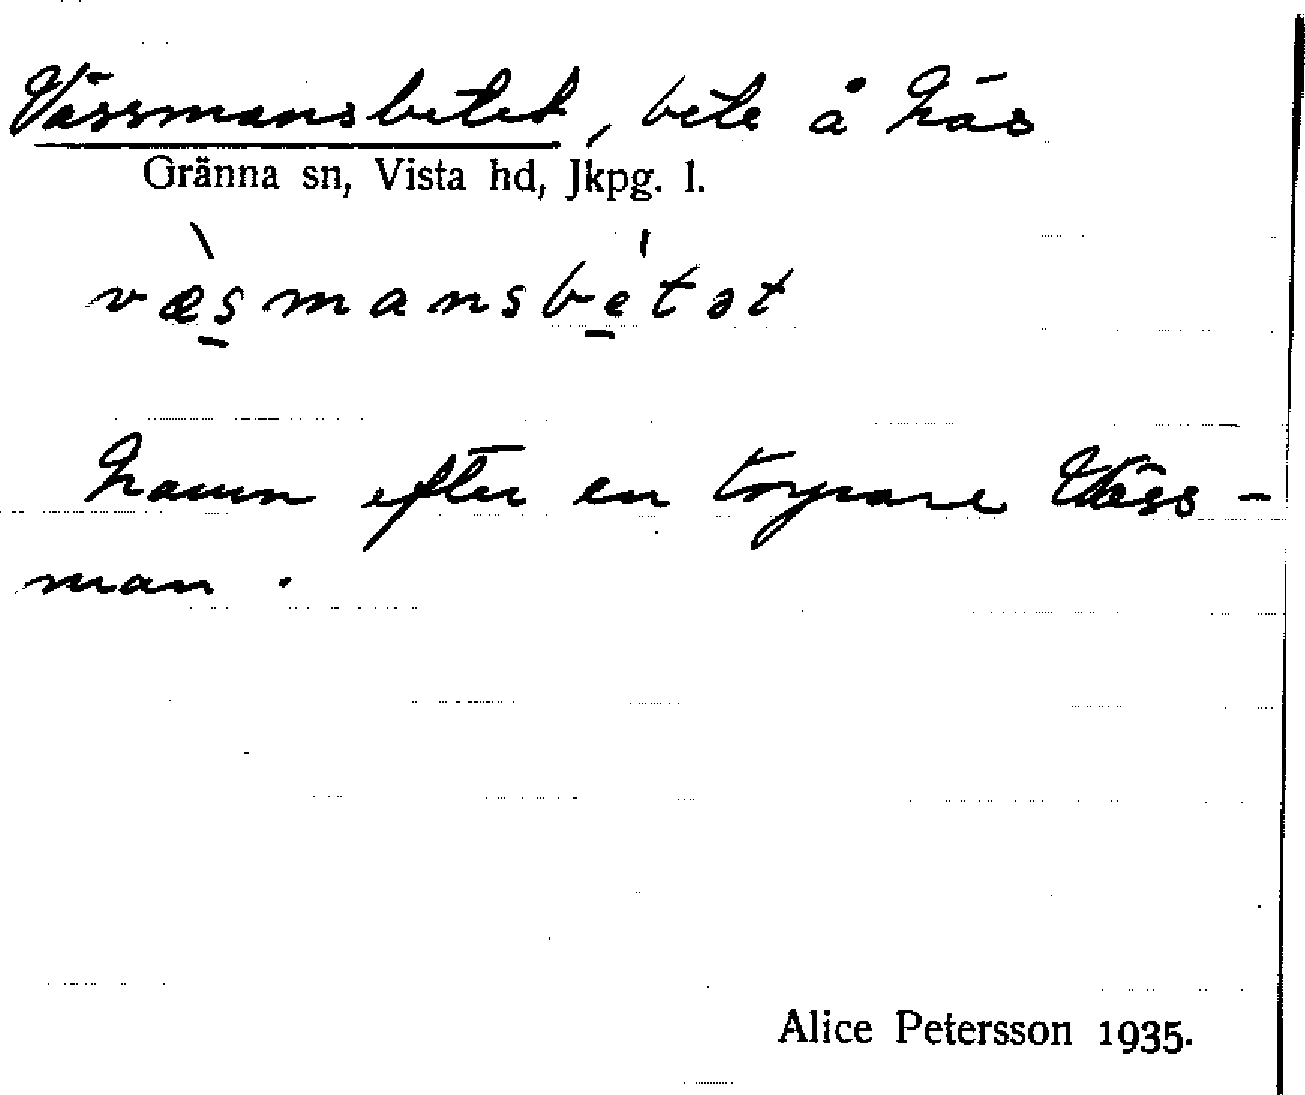 Vässmansbetet, bete å Näs
Gränna sn, Vista hd, Jkpg. l.
væsmansbetət
Namn efter en torpare Wäss-
man.
Alice Petersson 1935.